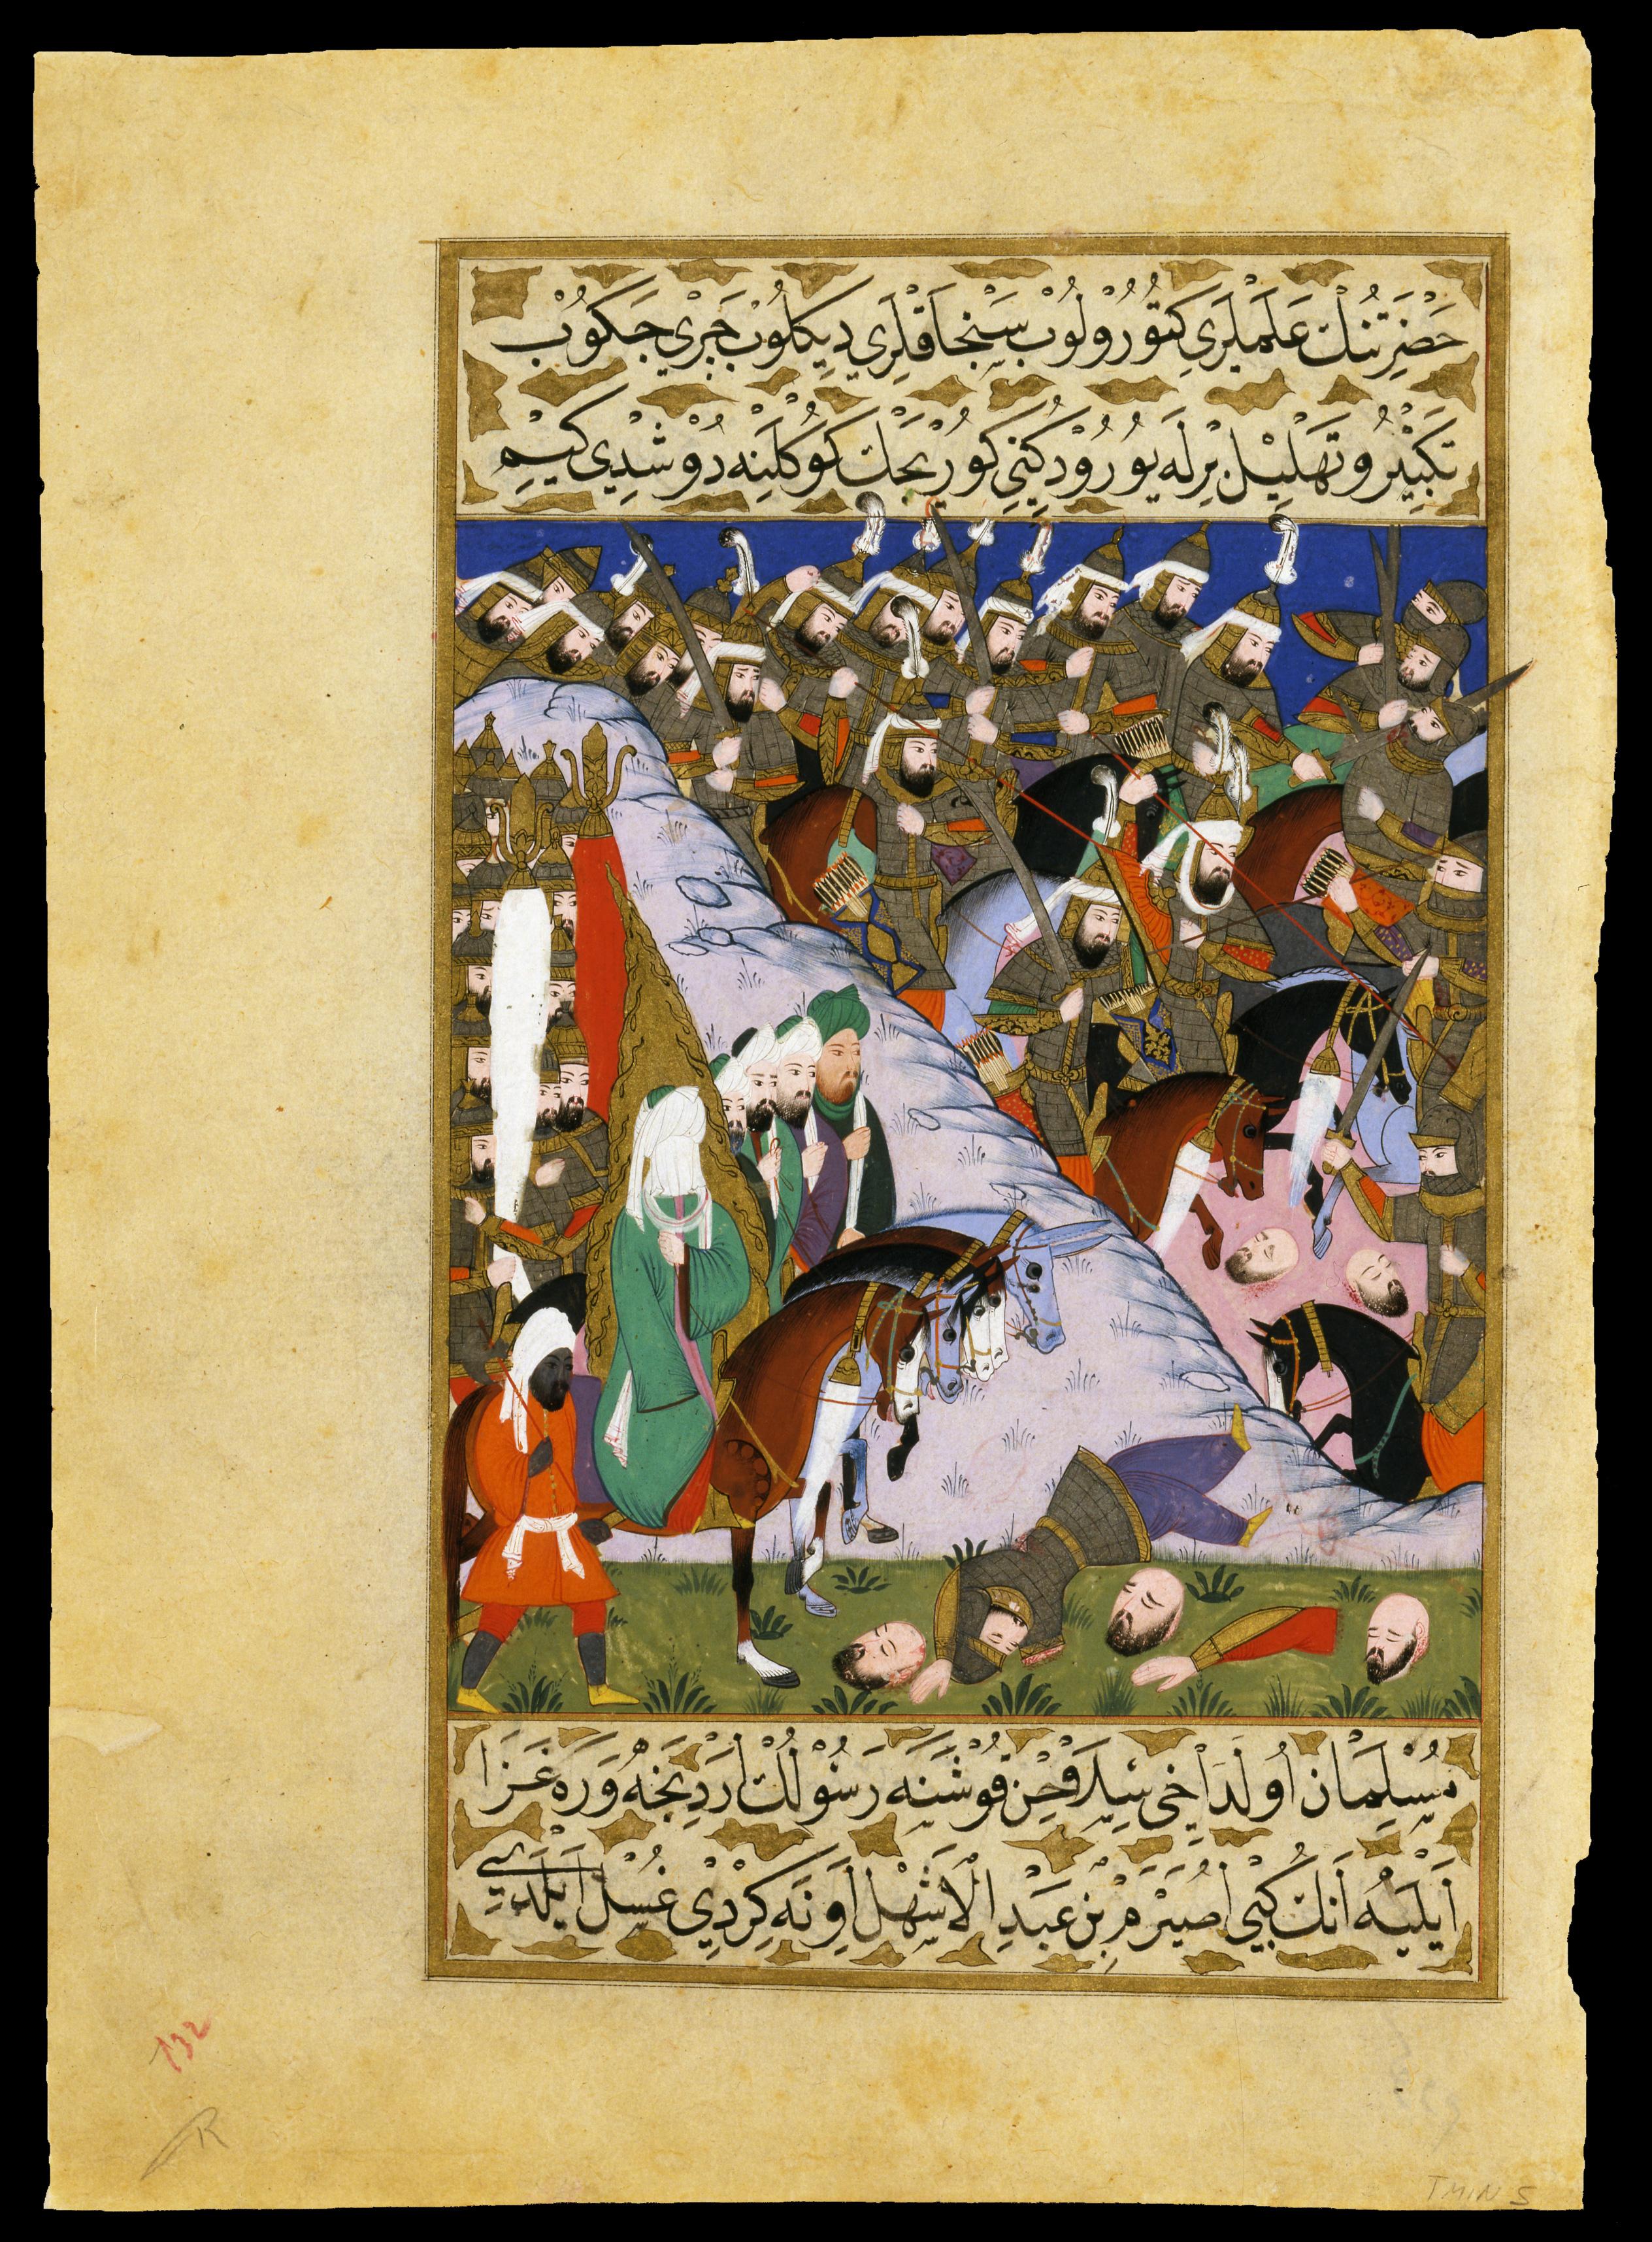 حَضْرَتُنُكْ عَلَمْلَرِي كَتُورُولُوبْ سَنْجَاقْلَرِي دِيكِلُوبْ جَرِي جَكُوبْ
تَكْبِيرُ و تَهْلِيلْ بِرْلَه يُورُودُكِنِي كُورِيجَكْ كُوكْلِنَه دُوشْدِي كِيم
مُسْلِمَانْ اُولَه اَخِي سِلَاحِنْ قُوشَنَه رَسُولُكْ اَرْدِنْجَه وَرَه غَزَا
اَيْلَيَه اَنُكْ كِبِي اُصَيْرَمْ بِنْ عَبْدِ الْاَشْهَلْ اَوِنَه كِرْدِي غُسْلْ اَيْلَدِي
132
R
TMIN 5